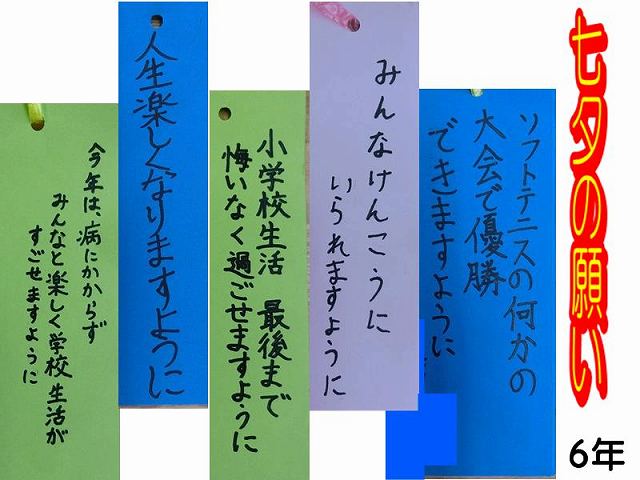 七夕の願い
6年
ソフトテニスの何かの
大会で優勝
できますように
みんなけんこうに
いられますように
小学校生活 最後まで
悔いなく過ごせますように
人生楽しくなりますように
今年は、病にかからず
みんなと楽しく学校生活が
すごせますように